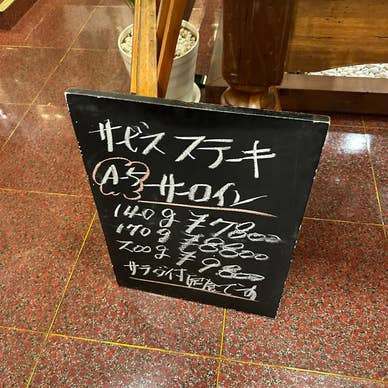 サービス ステーキ
A5 サーロイン
140g ¥7800
170g ¥8800
200g ¥9800
サラダ付 定食です